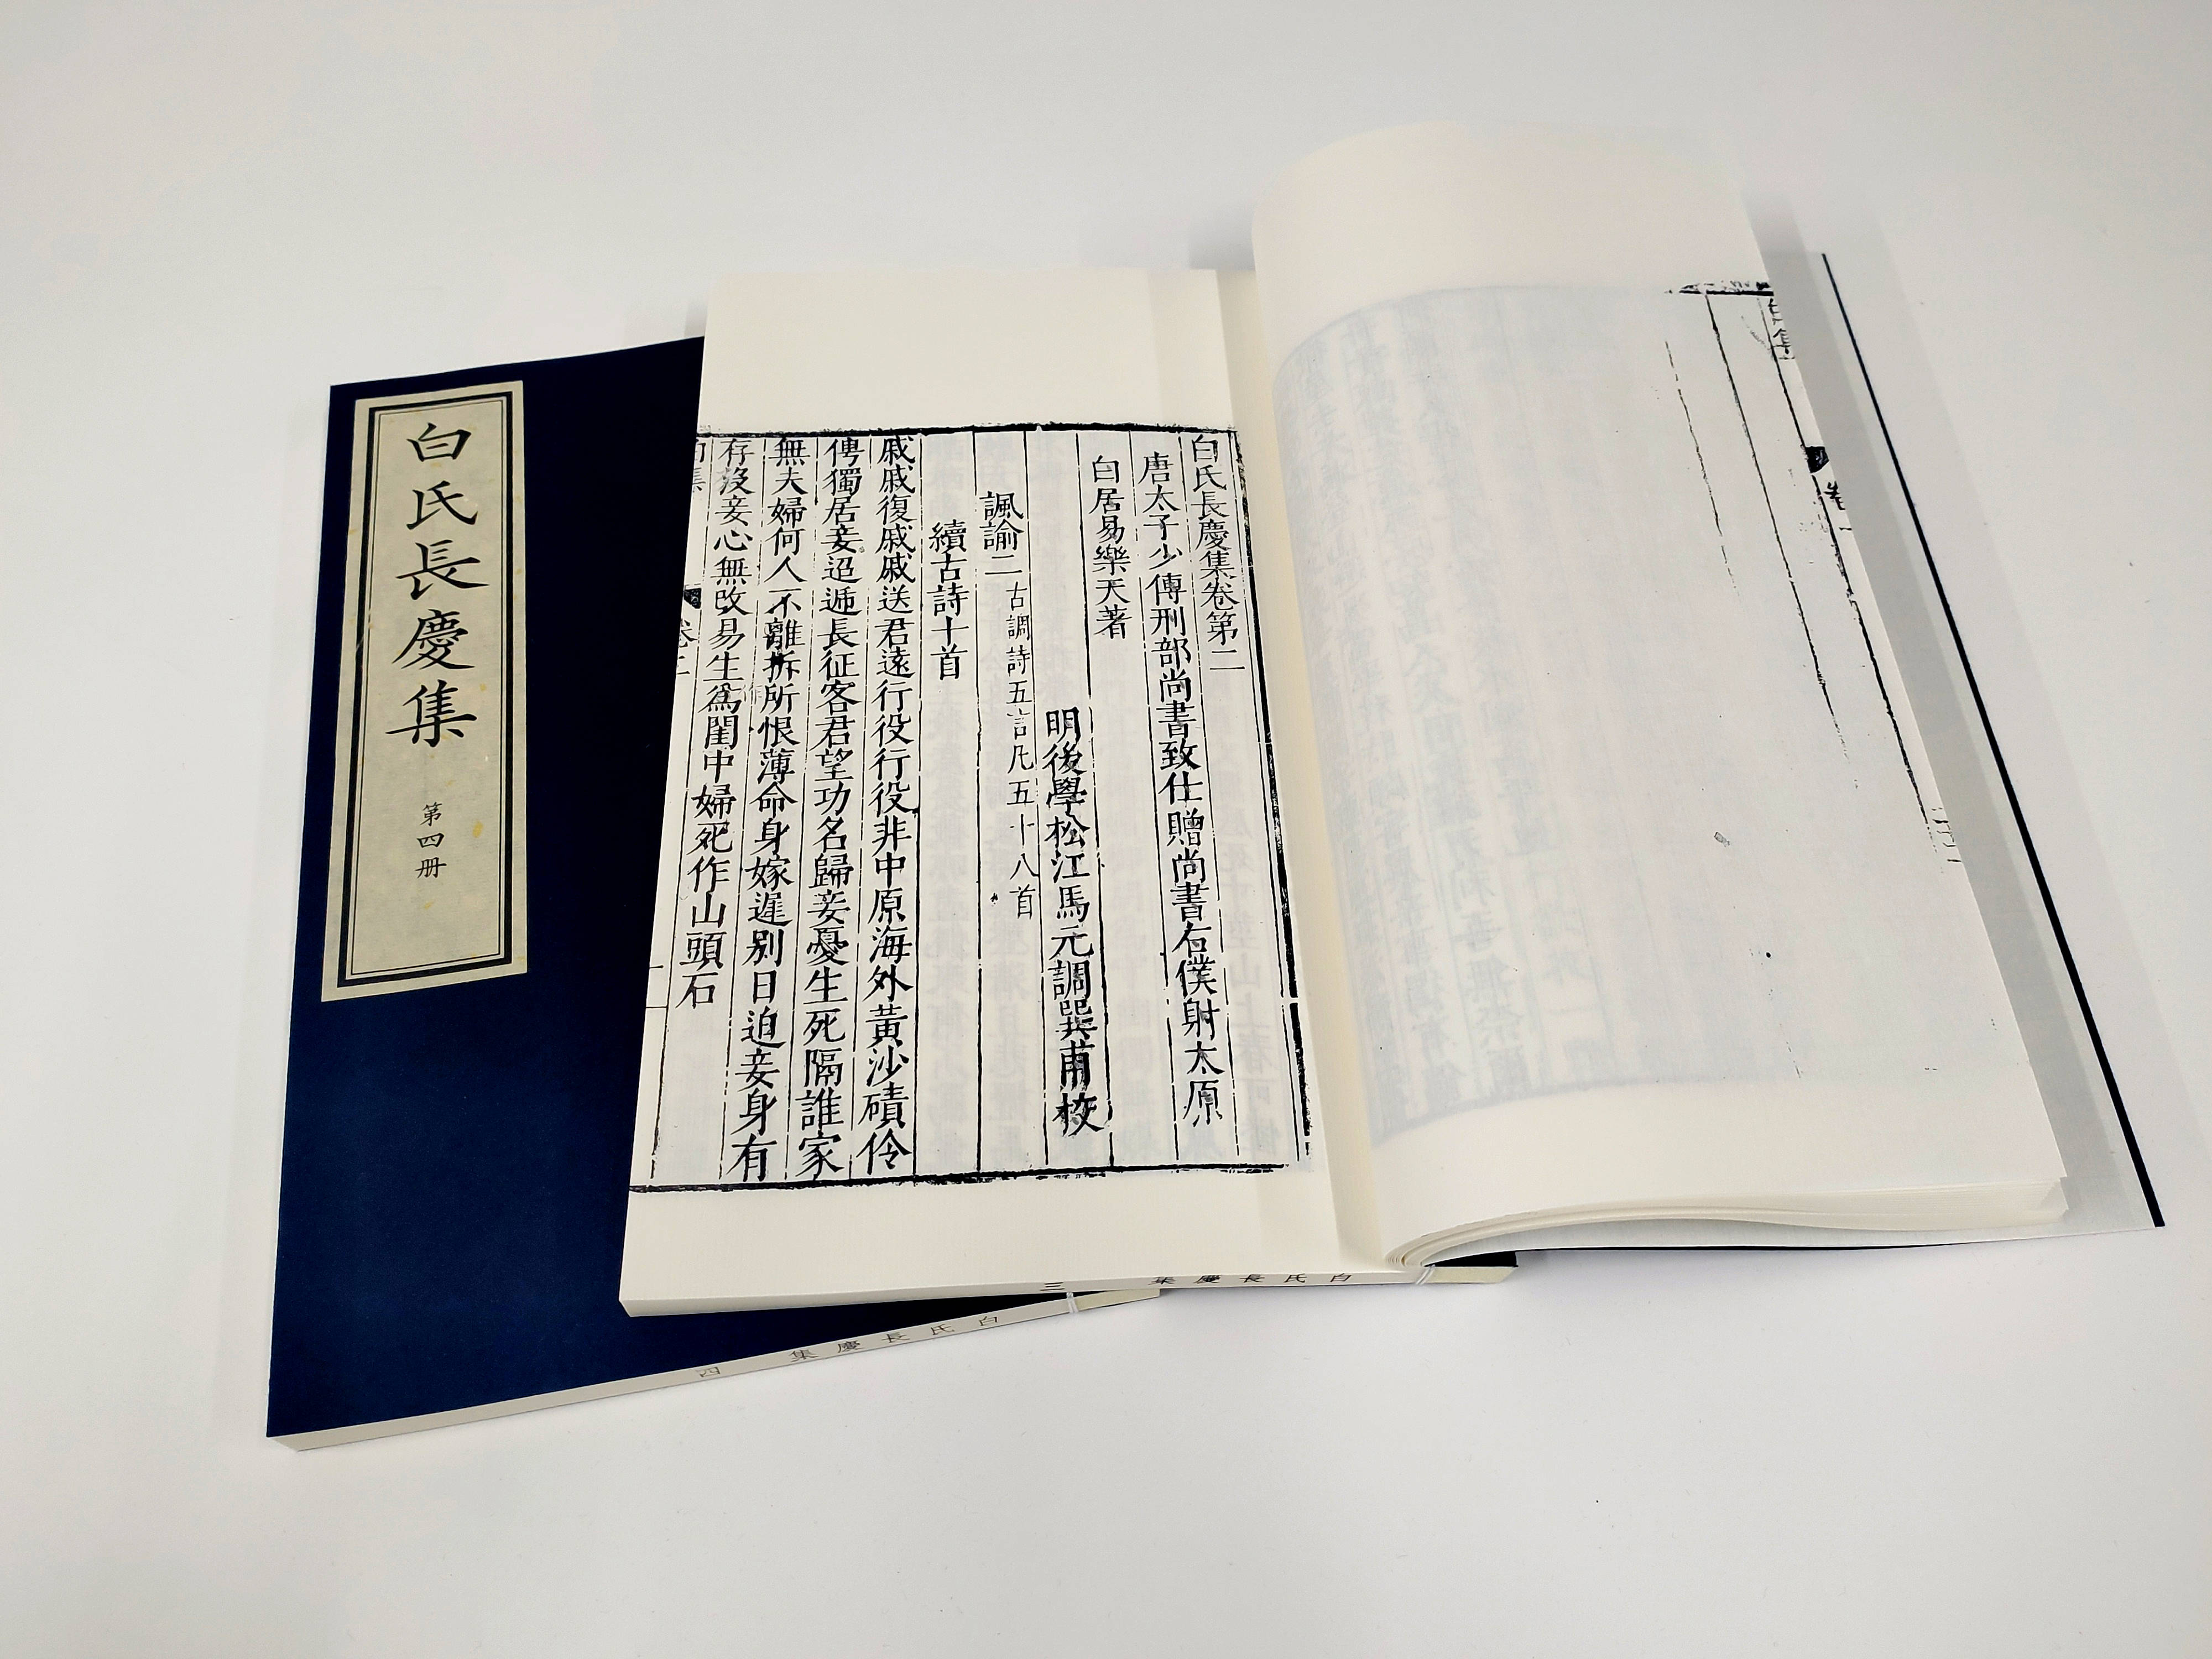 白氏長慶集
第四册
白氏長慶集卷第二
唐太子少傅刑部尚書致仕贈尚書右僕射太原
白居易樂天著
明後學松江馬元調巽甫校
諷諭二 古調詩五言凡五十八首
續古詩十首
戚戚復戚戚送君遠行役行役非中原海外黃沙磧伶
俜獨居妾迢遞長征客君望功名歸妾憂生死隔誰家
無夫婦何人不離拆所恨薄命身嫁遲别日迫妾身有
存歿妾心無改易生爲閨中婦死作山頭石
卷二
白氏長慶集 三
白氏長慶集 四